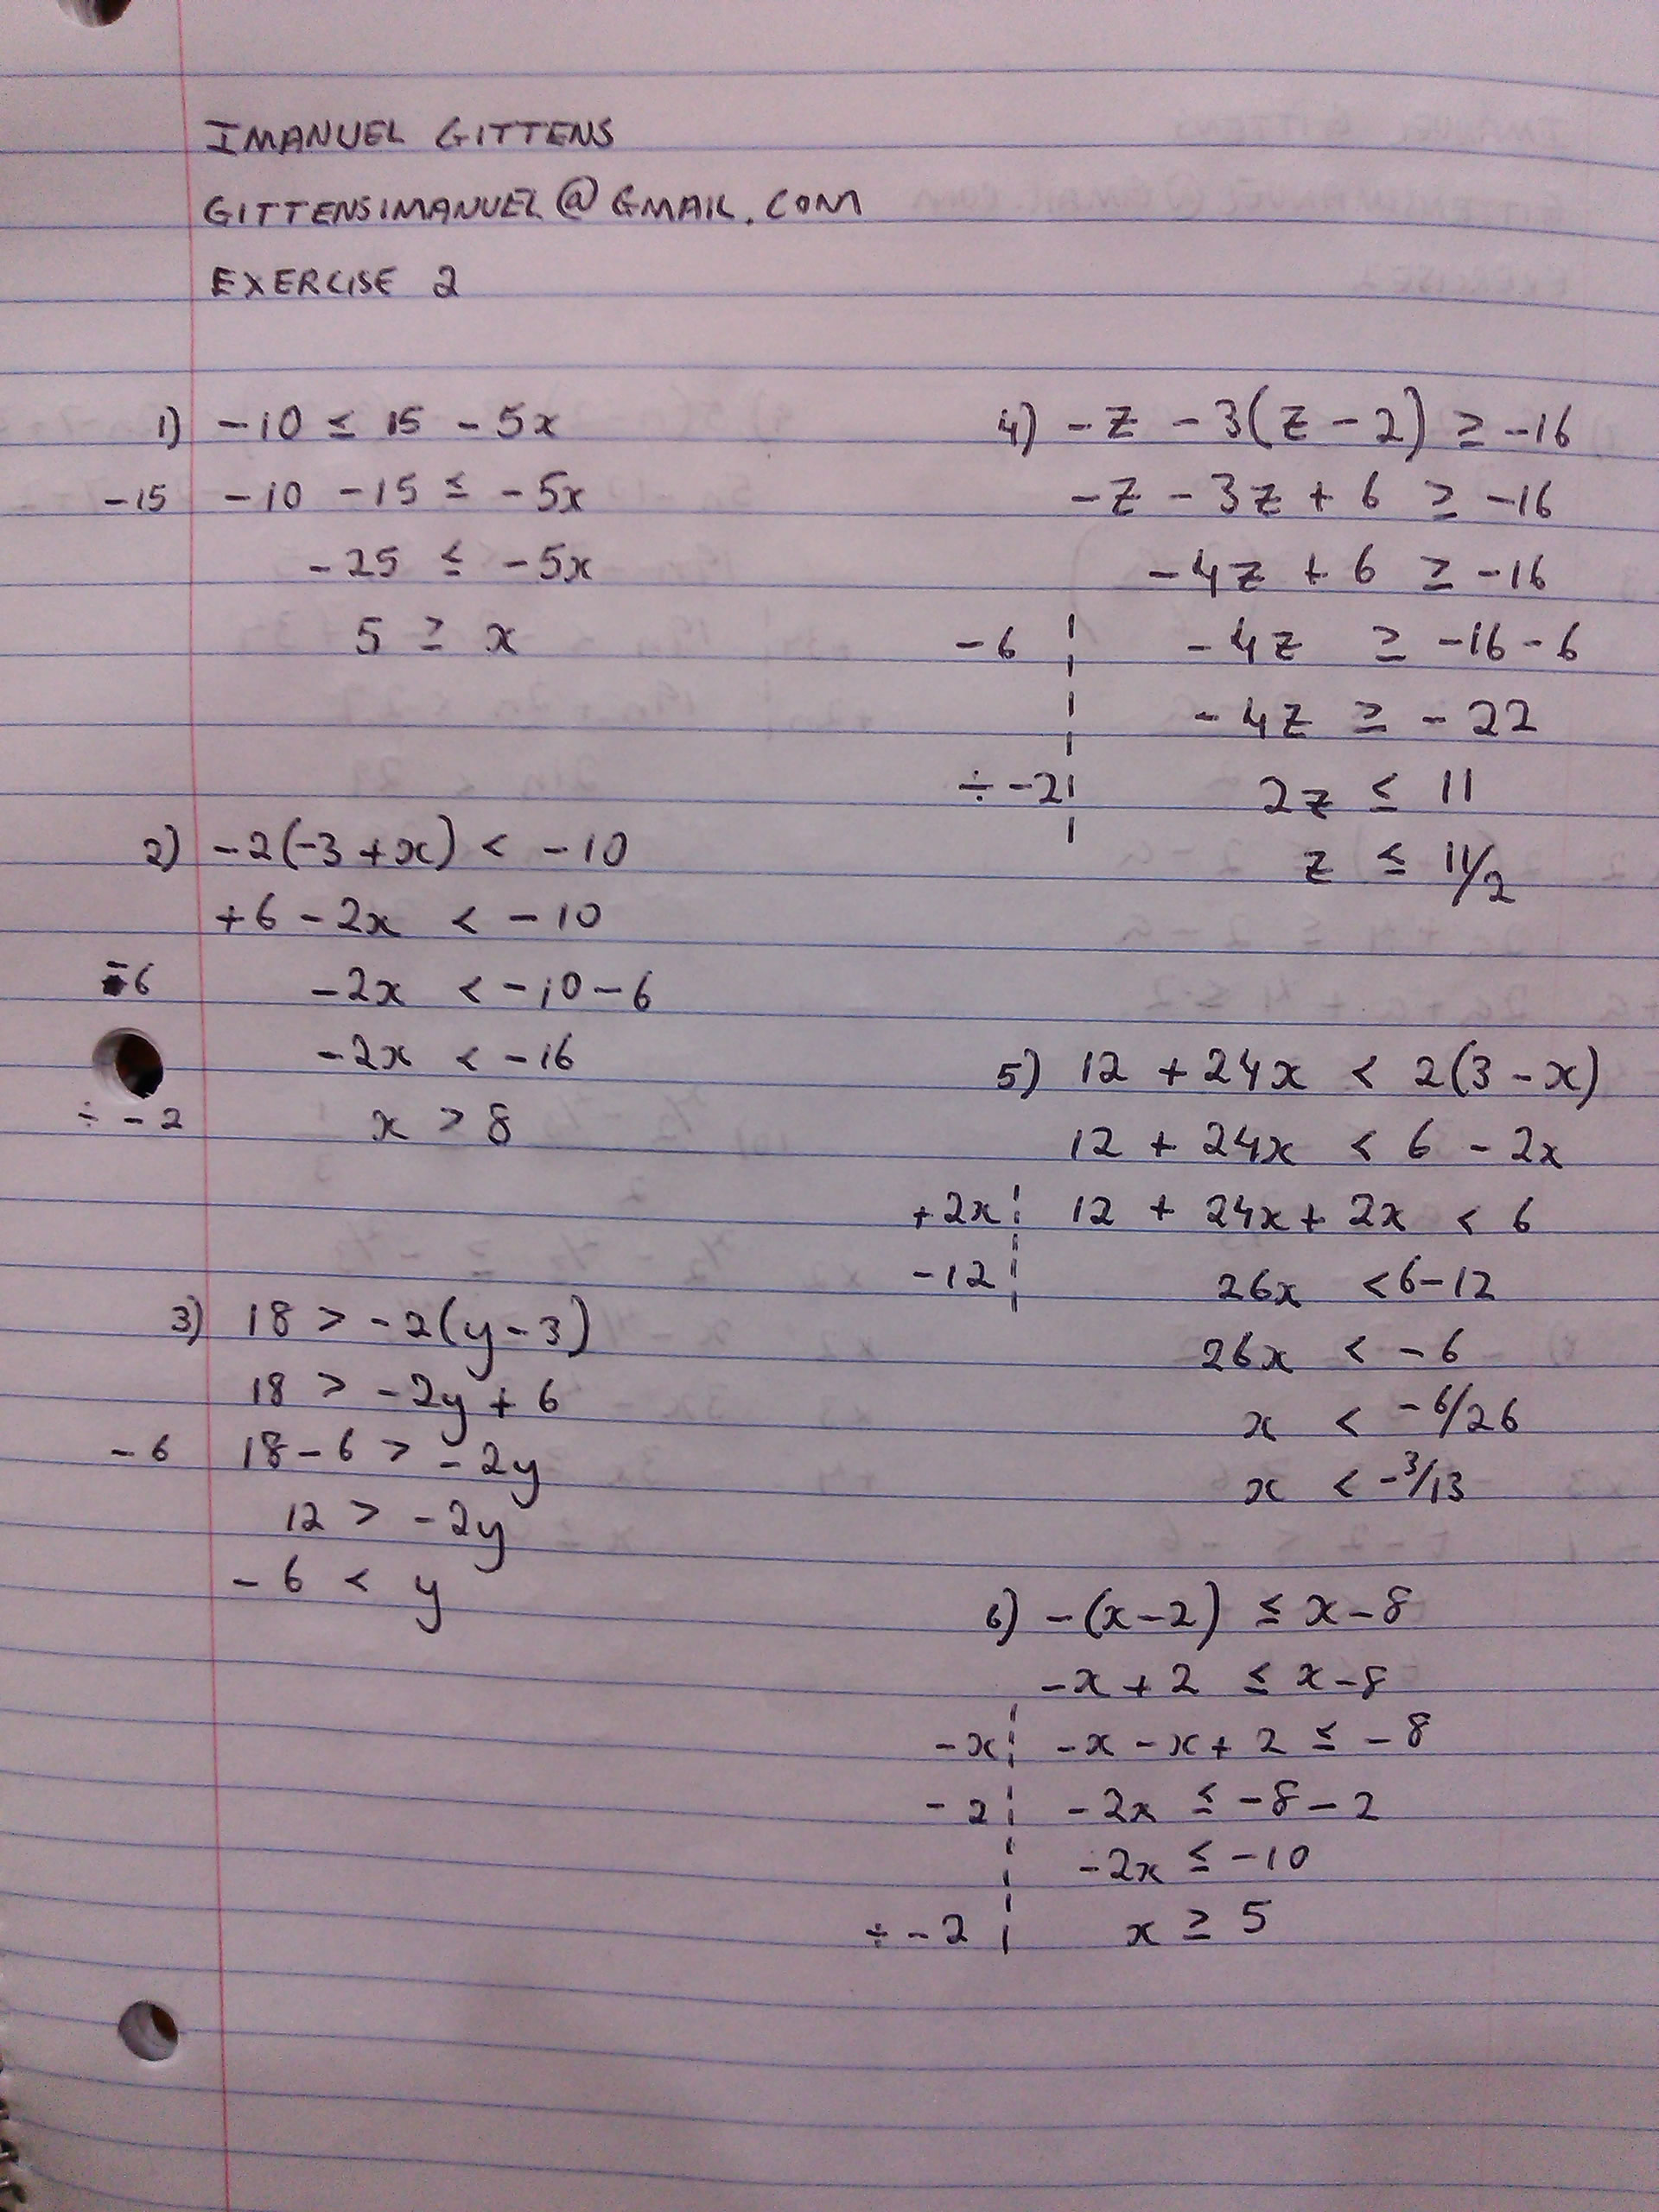 IMANUEL GITTENS
GITTENSIMANUEL@GMAIL.COM
EXERCISE 2
1) -10 ≤ 15 - 5x
-15 -10 -15 ≤ -5x
-25 ≤ -5x
5 ≥ x
2) -2(-3+x) < -10
+6 - 2x < -10
-6 -2x < -10-6
-2x < -16
÷ -2 x > 8
3) 18 > -2(y-3)
18 > -2y + 6
-6 18-6 > -2y
12 > -2y
-6 < y
4) -z - 3(z-2) ≥ -16
-z - 3z + 6 ≥ -16
-4z + 6 ≥ -16
-6 -4z ≥ -16-6
-4z ≥ -22
÷ -2 2z ≤ 11
z ≤ 11/2
5) 12 + 24x < 2(3-x)
12 + 24x < 6 - 2x
+2x 12 + 24x + 2x < 6
-12 26x < 6-12
26x < -6
x < -6/26
x < -3/13
6) -(x-2) ≤ x-8
-x+2 ≤ x-8
-x -x-x+2 ≤ -8
-2 -2x ≤ -8-2
-2x ≤ -10
÷ -2 x ≥ 5